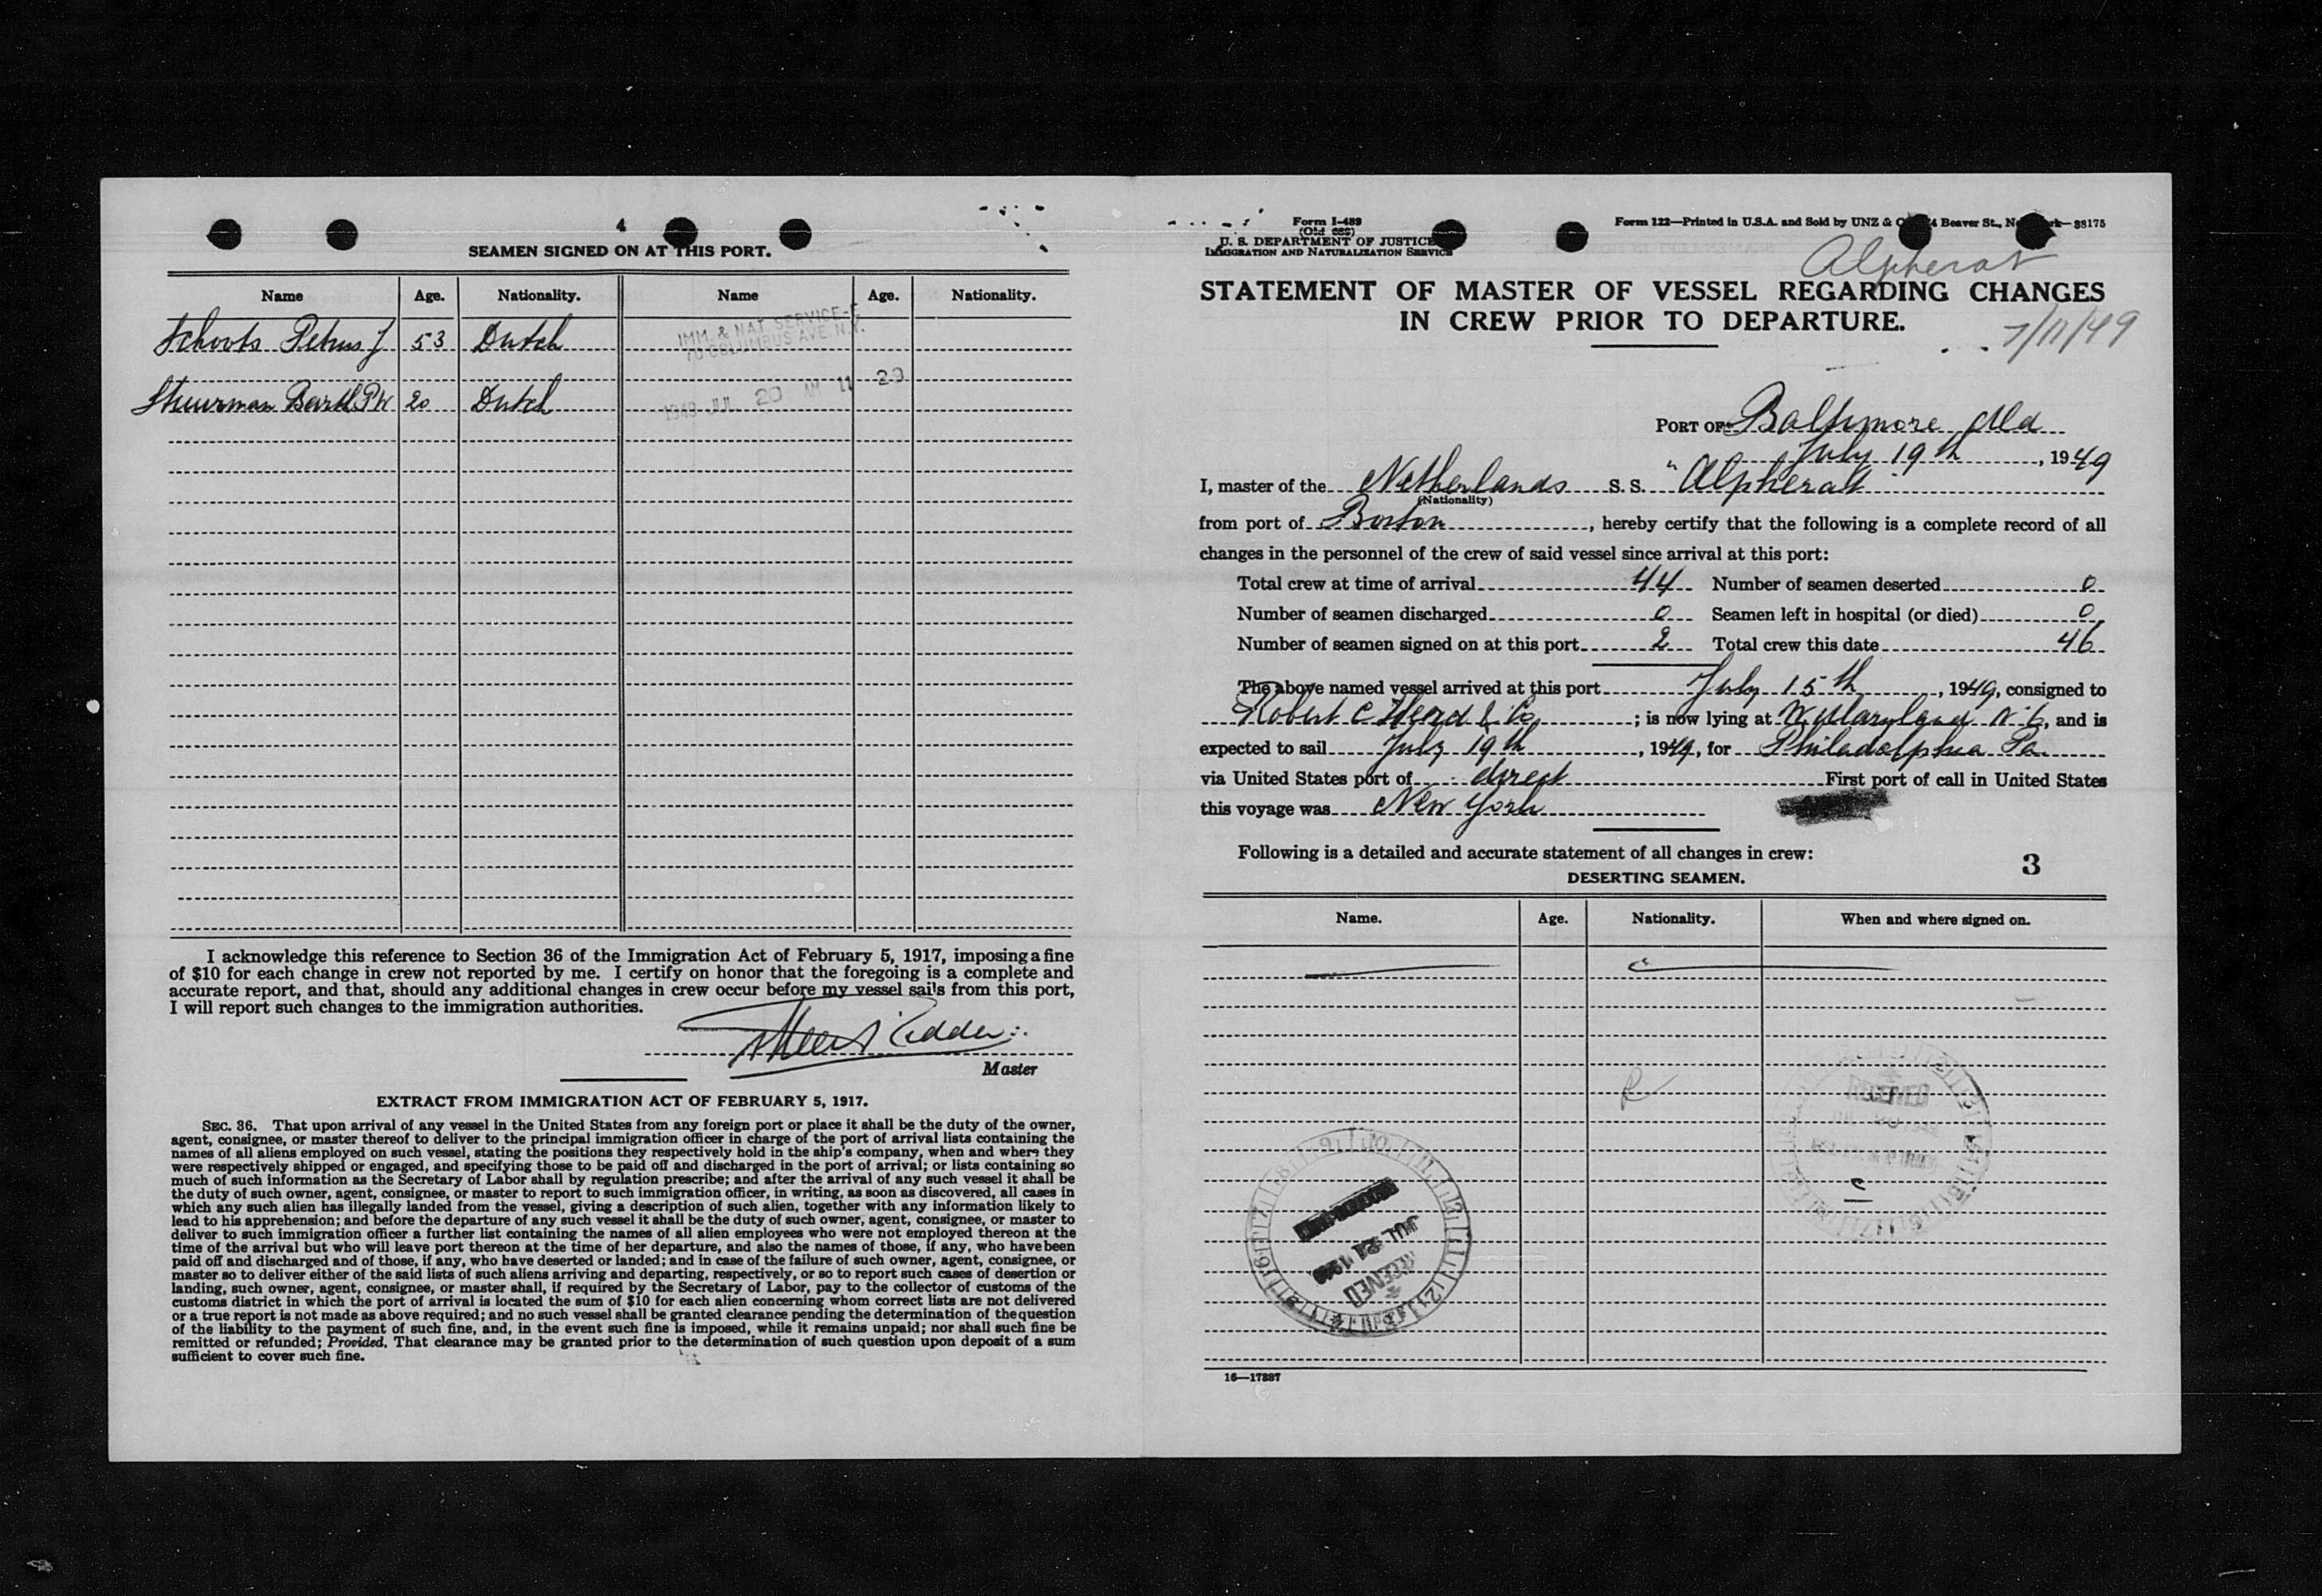 4
SEAMEN SIGNED ON AT THIS PORT.
Name Age. Nationality. Name Age. Nationality.
Schoots Petrus J 53 Dutch
Stuurman Barth PW 20 Dutch
IMM. & NAT SERVICE-E
70 COLUMBUS AVE. N.Y.
1949 JUL 20 AM 11 29
I acknowledge this reference to Section 36 of the Immigration Act of February 5, 1917, imposing a fine
of $10 for each change in crew not reported by me. I certify on honor that the foregoing is a complete and
accurate report, and that, should any additional changes in crew occur before my vessel sails from this port,
I will report such changes to the immigration authorities.
Master
EXTRACT FROM IMMIGRATION ACT OF FEBRUARY 5, 1917.
SEC. 36. That upon arrival of any vessel in the United States from any foreign port or place it shall be the duty of the owner,
agent, consignee, or master thereof to deliver to the principal immigration officer in charge of the port of arrival lists containing the
names of all aliens employed on such vessel, stating the positions they respectively hold in the ship's company, when and where they
were respectively shipped or engaged, and specifying those to be paid off and discharged in the port of arrival; or lists containing so
much of such information as the Secretary of Labor shall by regulation prescribe; and after the arrival of any such vessel it shall be
the duty of such owner, agent, consignee, or master to report to such immigration officer, in writing, as soon as discovered, all cases in
which any such alien has illegally landed from the vessel, giving a description of such alien, together with any information likely to
lead to his apprehension; and before the departure of any such vessel it shall be the duty of such owner, agent, consignee, or master to
deliver to such immigration officer a further list containing the names of all alien employees who were not employed thereon at the
time of the arrival but who will leave port thereon at the time of her departure, and also the names of those, if any, who have been
paid off and discharged and of those, if any, who have deserted or landed; and in case of the failure of such owner, agent, consignee, or
master so to deliver either of the said lists of such aliens arriving and departing, respectively, or so to report such cases of desertion or
landing, such owner, agent, consignee, or master shall, if required by the Secretary of Labor, pay to the collector of customs of the
customs district in which the port of arrival is located the sum of $10 for each alien concerning whom correct lists are not delivered
or a true report is not made as above required; and no such vessel shall be granted clearance pending the determination of the question
of the liability to the payment of such fine, and, in the event such fine is imposed, while it remains unpaid; nor shall such fine be
remitted or refunded; Provided, That clearance may be granted prior to the determination of such question upon deposit of a sum
sufficient to cover such fine.
Form I-489
(Old 689)
U. S. DEPARTMENT OF JUSTICE
IMMIGRATION AND NATURALIZATION SERVICE
Form 122—Printed in U.S.A. and Sold by UNZ & Beaver St., 38175
Alpherat
STATEMENT OF MASTER OF VESSEL REGARDING CHANGES
IN CREW PRIOR TO DEPARTURE.
7/11/49
PORT OF Baltimore Md
July 19th, 1949
I, master of the Netherlands S. S. "Alpherat
(Nationality)
from port of Boston, hereby certify that the following is a complete record of all
changes in the personnel of the crew of said vessel since arrival at this port:
Total crew at time of arrival 44 Number of seamen deserted 0
Number of seamen discharged 0 Seamen left in hospital (or died) 0
Number of seamen signed on at this port 2 Total crew this date 46
The above named vessel arrived at this port July 15th, 1949, consigned to
Robert C Herd & Co; is now lying at W Maryland, and is
expected to sail July 19th, 1949, for Philadelphia Pa.
via United States port of direct First port of call in United States
this voyage was New York
Following is a detailed and accurate statement of all changes in crew:
3
DESERTING SEAMEN.
Name. Age. Nationality. When and where signed on.
RECEIVED
JUL
RECEIVED
16—17887